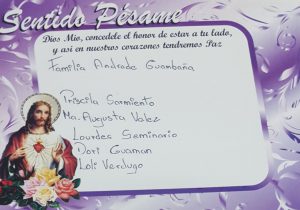 Sentido Pésame
Dios Mio, concedele el honor de estar a tu lado,
y asi en nuestros corazones tendremos Paz
Familia Andrade Guambaña
Priscila Sarmiento
Ma. Augusta Valez
Lourdes Seminario
Dori Guaman
Loli Verdugo